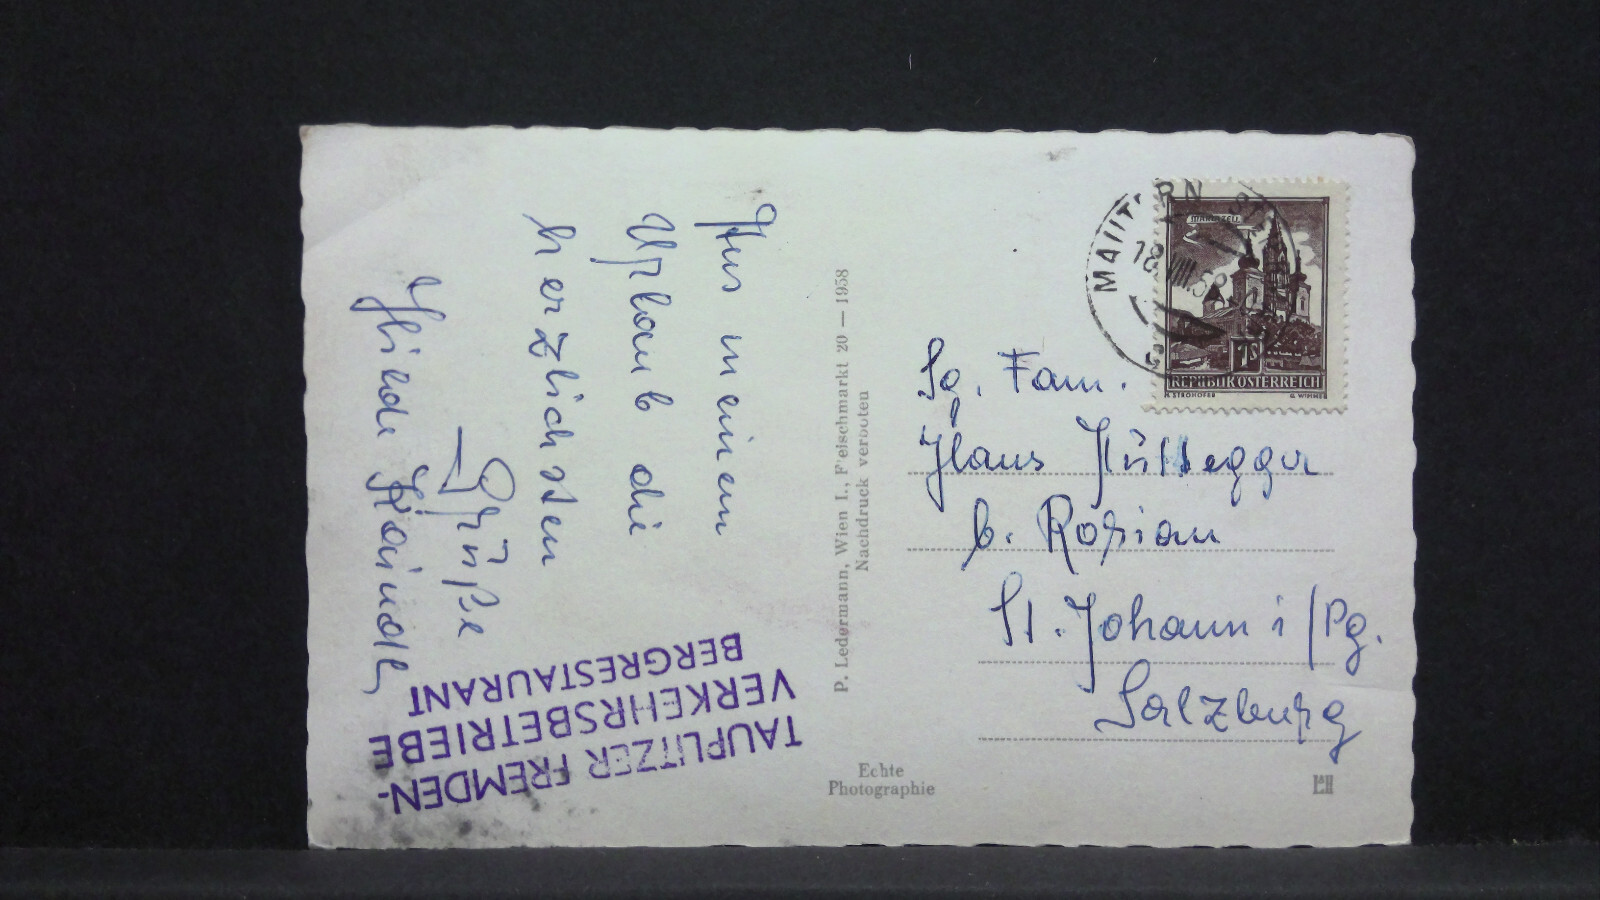 Aus meinem
Urlaub die
herzlichsten
Grüße
Hilde
TAUPLITZER FREMDEN-
VERKEHRSBETRIEBE
BERGRESTAURANT
P. Ledermann, Wien I., Fleischmarkt 20 — 1958
Nachdruck verboten
Echte
Photographie
MARIAZELL
1S
REPUBLIK ÖSTERREICH
G. WIMMER
18.VIII.58
Fam.
Hans
b.
St. Johann i/Pg.
Salzburg